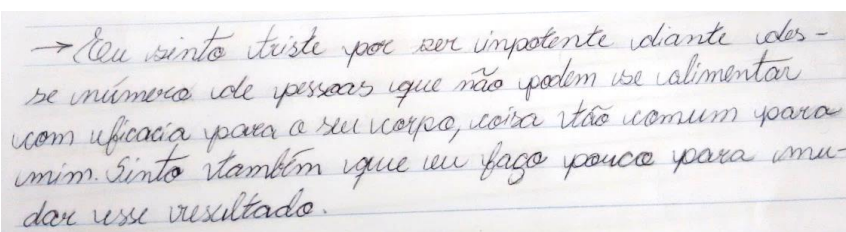 → Eu sinto triste por ser impotente diante des-
se número de pessoas que não podem se alimentar
com eficacia para o seu corpo, coisa tão comum para
mim. Sinto também que eu faço pouco para mu-
dar esse resultado.